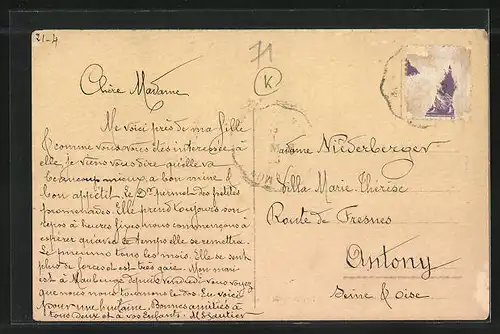 21-4
71
K
Chère Madame
Me voici près de ma fille
& comme vous vous êtes intéressée à
elle, je viens vous dire qu'elle va
beaucoup mieux, a bon mine &
bon appétit. Le Dr permet des petites
promenades. Elle prend toujours son
repos à heures fixes, nous commençons à
espérer qu'avec le temps elle se remettra.
Le pneumo tous les mois. Elle se sent
plus de forces et est très gaie. Mon mari
est à Maubeuge depuis Vendredi, vous voyez
que nous nous tournons le dos. En voici
pour une huitaine. Bonnes amitiés à
tous deux et à vos Enfants.
Madame Niederberger
Villa Marie Thérèse
Route de Fresnes
Antony
Seine & Oise